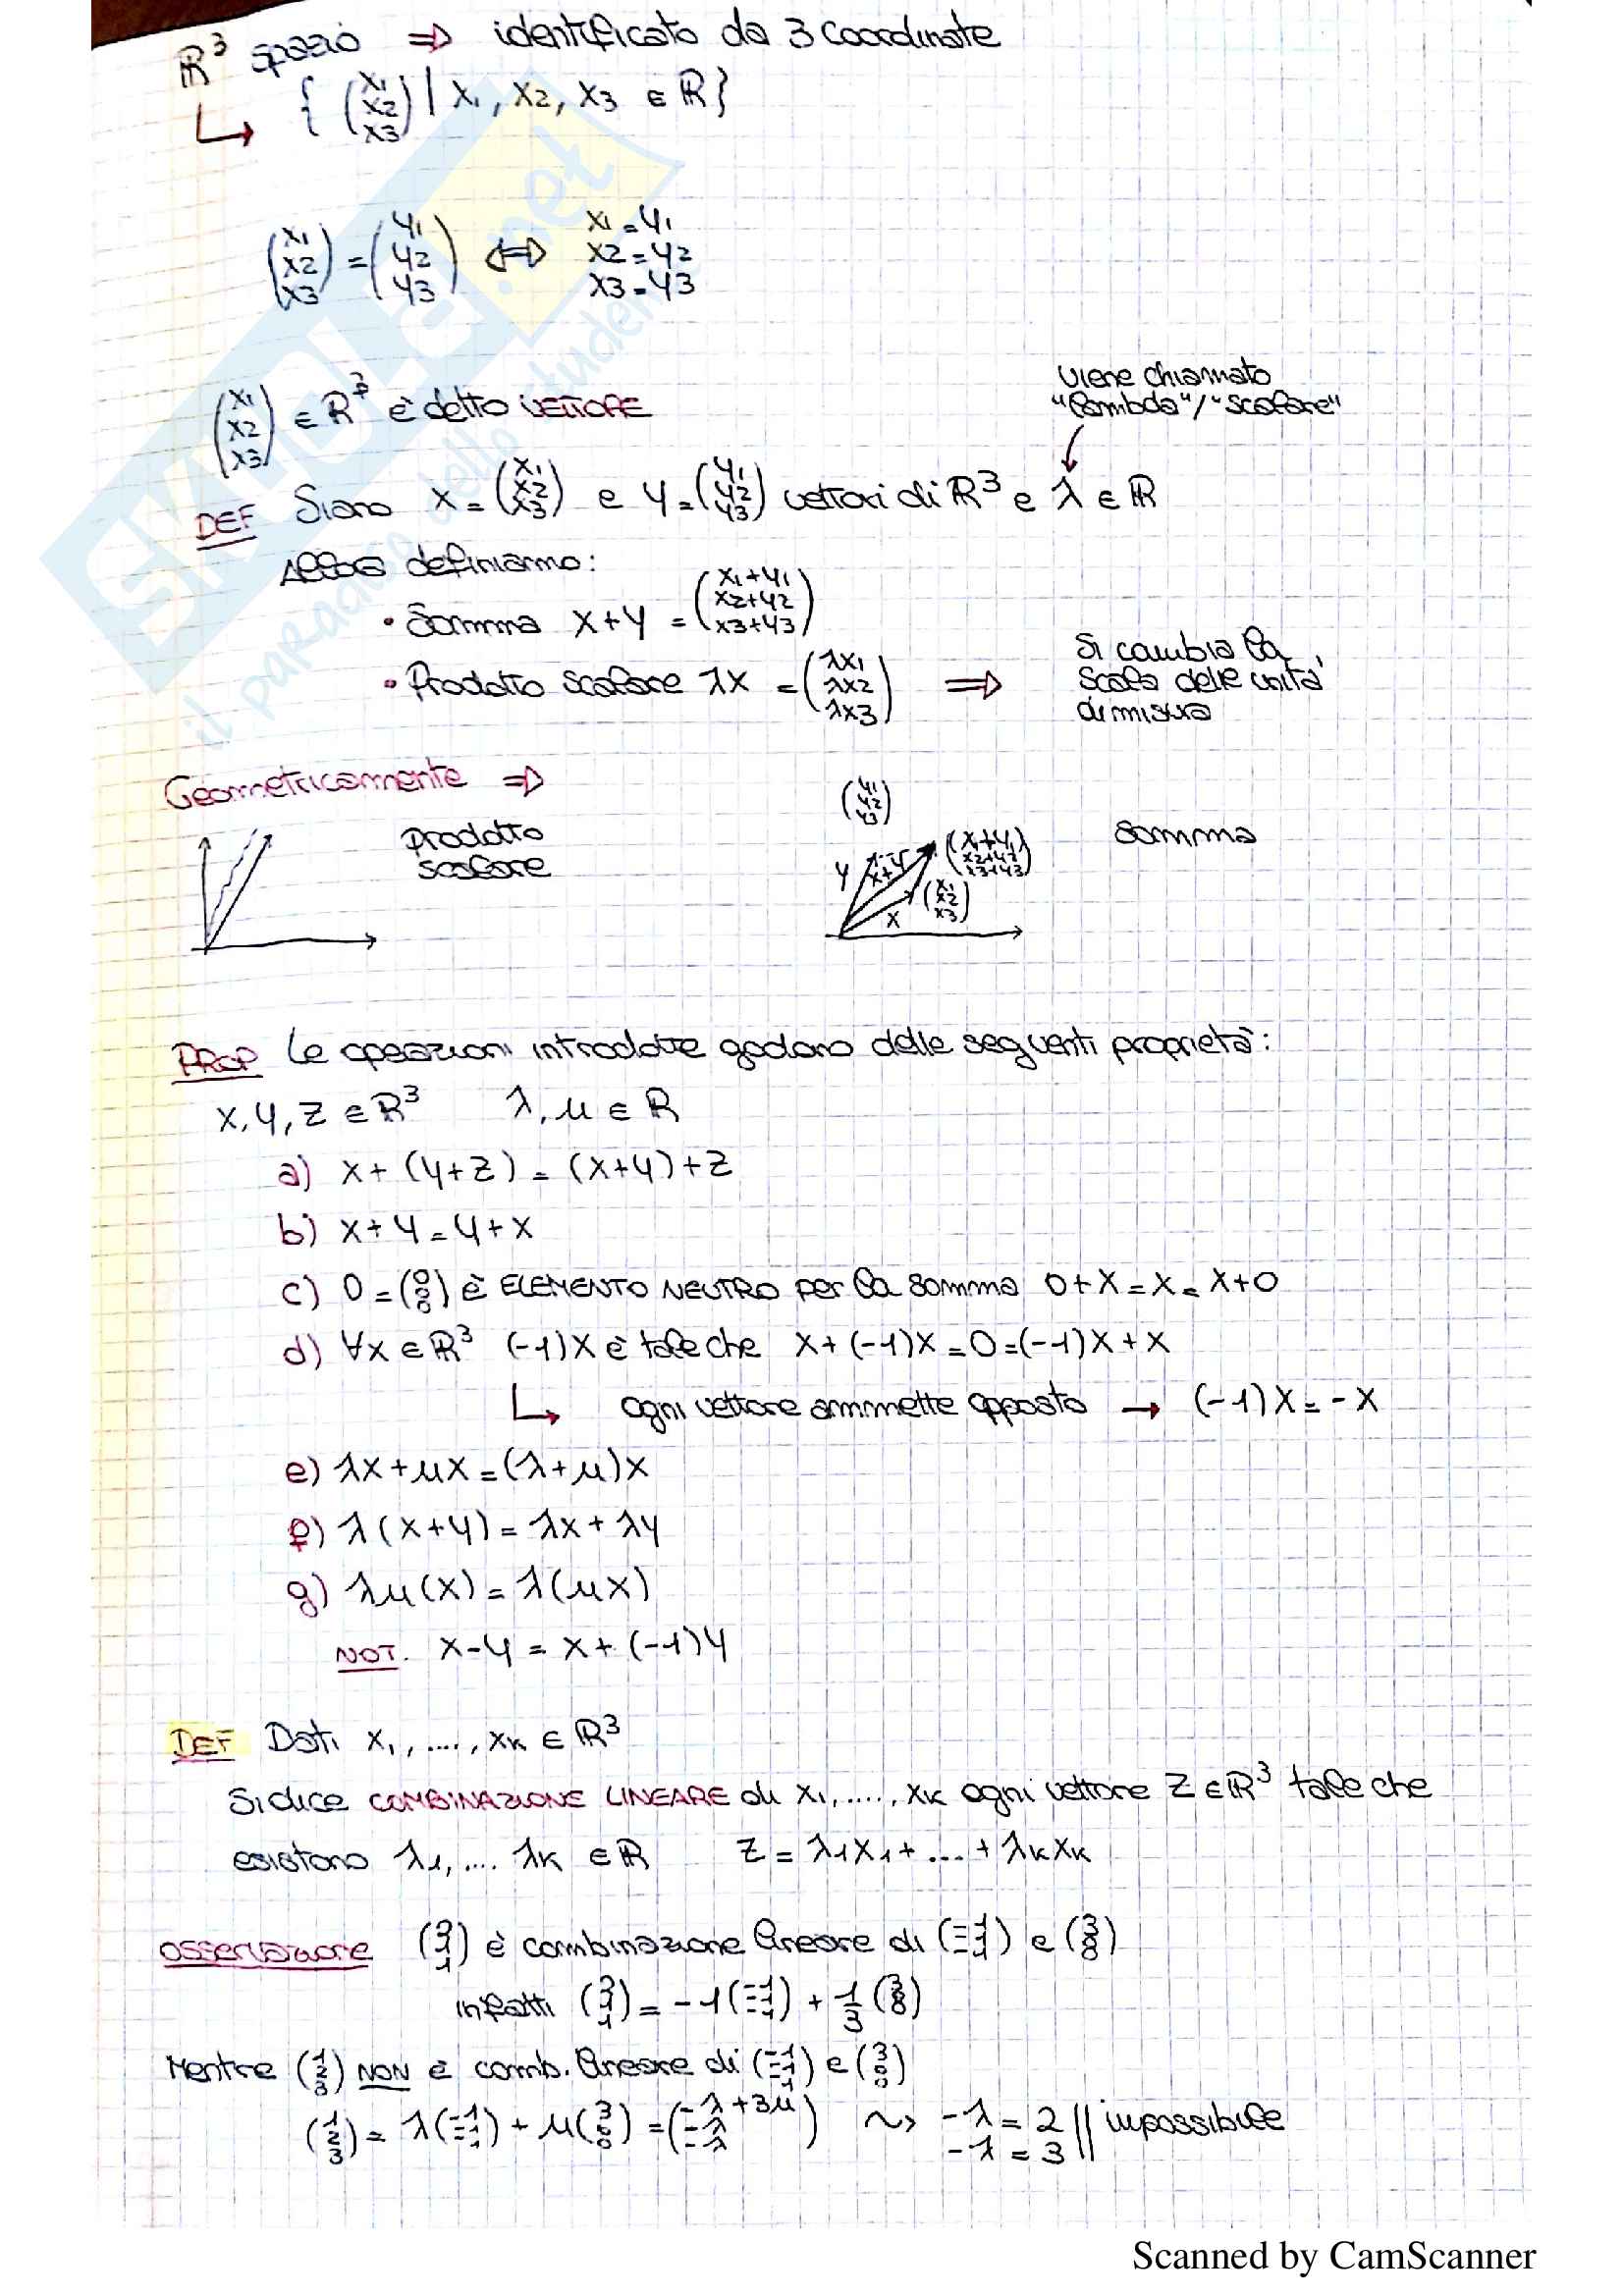 ℝ³ spazio ⇒ identificato da 3 coordinate
↳ { (x₁ x₂ x₃) | x₁, x₂, x₃ ∈ ℝ}
(x₁ x₂ x₃) = (y₁ y₂ y₃) ⇔ x₁=y₁ x₂=y₂ x₃=y₃
(x₁ x₂ x₃) ∈ ℝ³ è detto VETTORE
viene chiamato
"lambda"/"scalare"
DEF Siano x = (x₁ x₂ x₃) e y = (y₁ y₂ y₃) vettori di ℝ³ e λ ∈ ℝ
Allora definiamo:
• Somma x+y = (x₁+y₁ x₂+y₂ x₃+y₃)
• Prodotto scalare λx = (λx₁ λx₂ λx₃) ⇒ Si cambia la
scala delle unità
di misura
Geometricamente ⇒
prodotto
scalare
(y₁ y₂ y₃)
y x+y (x₁+y₁ x₂+y₂ x₃+y₃)
x (x₁ x₂ x₃)
somma
PROP Le operazioni introdotte godono delle seguenti proprietà:
x, y, z ∈ ℝ³ λ, μ ∈ ℝ
a) x + (y+z) = (x+y)+z
b) x+y = y+x
c) 0 = (0 0 0) è ELEMENTO NEUTRO per la somma 0+x = x = x+0
d) ∀x ∈ ℝ³ (-1)x è tale che x+(-1)x = 0 = (-1)x + x
↳ ogni vettore ammette opposto → (-1)x = -x
e) λx+μx = (λ+μ)x
f) λ(x+y) = λx + λy
g) λμ(x) = λ(μx)
NOT. x-y = x+(-1)y
DEF Dati x₁, ...., xₖ ∈ ℝ³
Si dice COMBINAZIONE LINEARE di x₁, ...., xₖ ogni vettore z ∈ ℝ³ tale che
esistono λ₁, .... λₖ ∈ ℝ z = λ₁x₁+ ... + λₖxₖ
osservazione (2 1 1) è combinazione lineare di (-1 -1 -1) e (3 0 0)
infatti (2 1 1) = -1(-1 -1 -1) + 1/3 (3 0 0)
Mentre (1 2 3) NON è comb. lineare di (-1 -1 -1) e (3 0 0)
(1 2 3) = λ(-1 -1 -1) + μ(3 0 0) = (-λ+3μ -λ -λ) ⇝ -λ = 2 -λ = 3 || impossibile
SKUOLA.net
il paradiso dello studente
Scanned by CamScanner